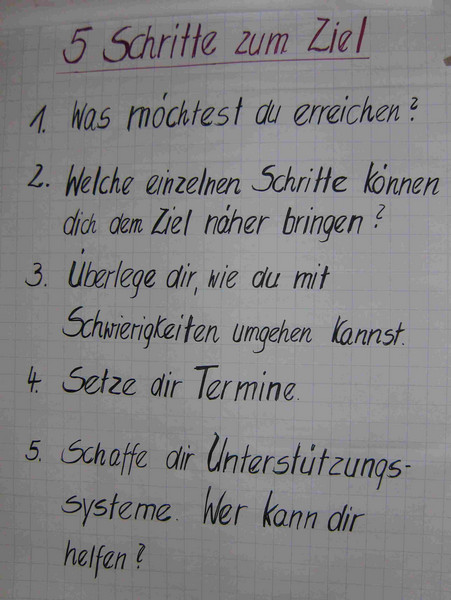 5 Schritte zum Ziel
1. Was möchtest du erreichen?
2. Welche einzelnen Schritte können
dich dem Ziel näher bringen?
3. Überlege dir, wie du mit
Schwierigkeiten umgehen kannst.
4. Setze dir Termine.
5. Schaffe dir Unterstützungs-
systeme. Wer kann dir
helfen?